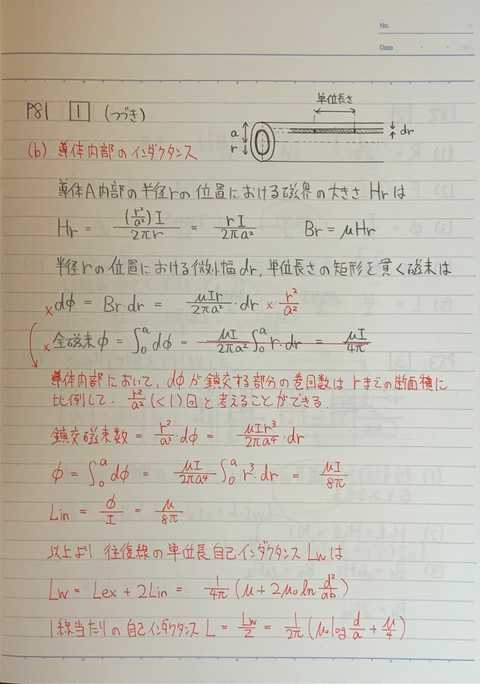 No.
Date
P81 1 (つづき)
単位長さ
a
r
dr
(b) 導体内部のインダクタンス
導体A内部の半径rの位置における磁界の大きさ Hrは
Hr = (r²/a²)I / 2πr = rI / 2πa²  Br = μHr
半径rの位置における微小幅dr, 単位長さの矩形を貫く磁束は
×dφ = Br・dr = μIr / 2πa² ・dr × r²/a²
×全磁束φ = ∫₀ᵃdφ = μI / 2πa² ∫₀ᵃ r・dr = μI / 4π
導体内部において, dφが鎖交する部分の巻回数は rまでの断面積に
比例して, r²/a² (<1)回と考えることができる.
鎖交磁束数 = r²/a² ・dφ = μIr³ / 2πa⁴ ・dr
φ = ∫₀ᵃdφ = μI / 2πa⁴ ∫₀ᵃ r³・dr = μI / 8π
Lin = φ/I = μ/8π
以上より 往復線の単位長自己インダクタンス Lwは
Lw = Lex + 2Lin = 1/4π (μ + 2μ₀ ln d²/ab)
1線当たりの自己インダクタンス L = Lw/2 = 1/2π (μ₀ log d/a + μ/4)